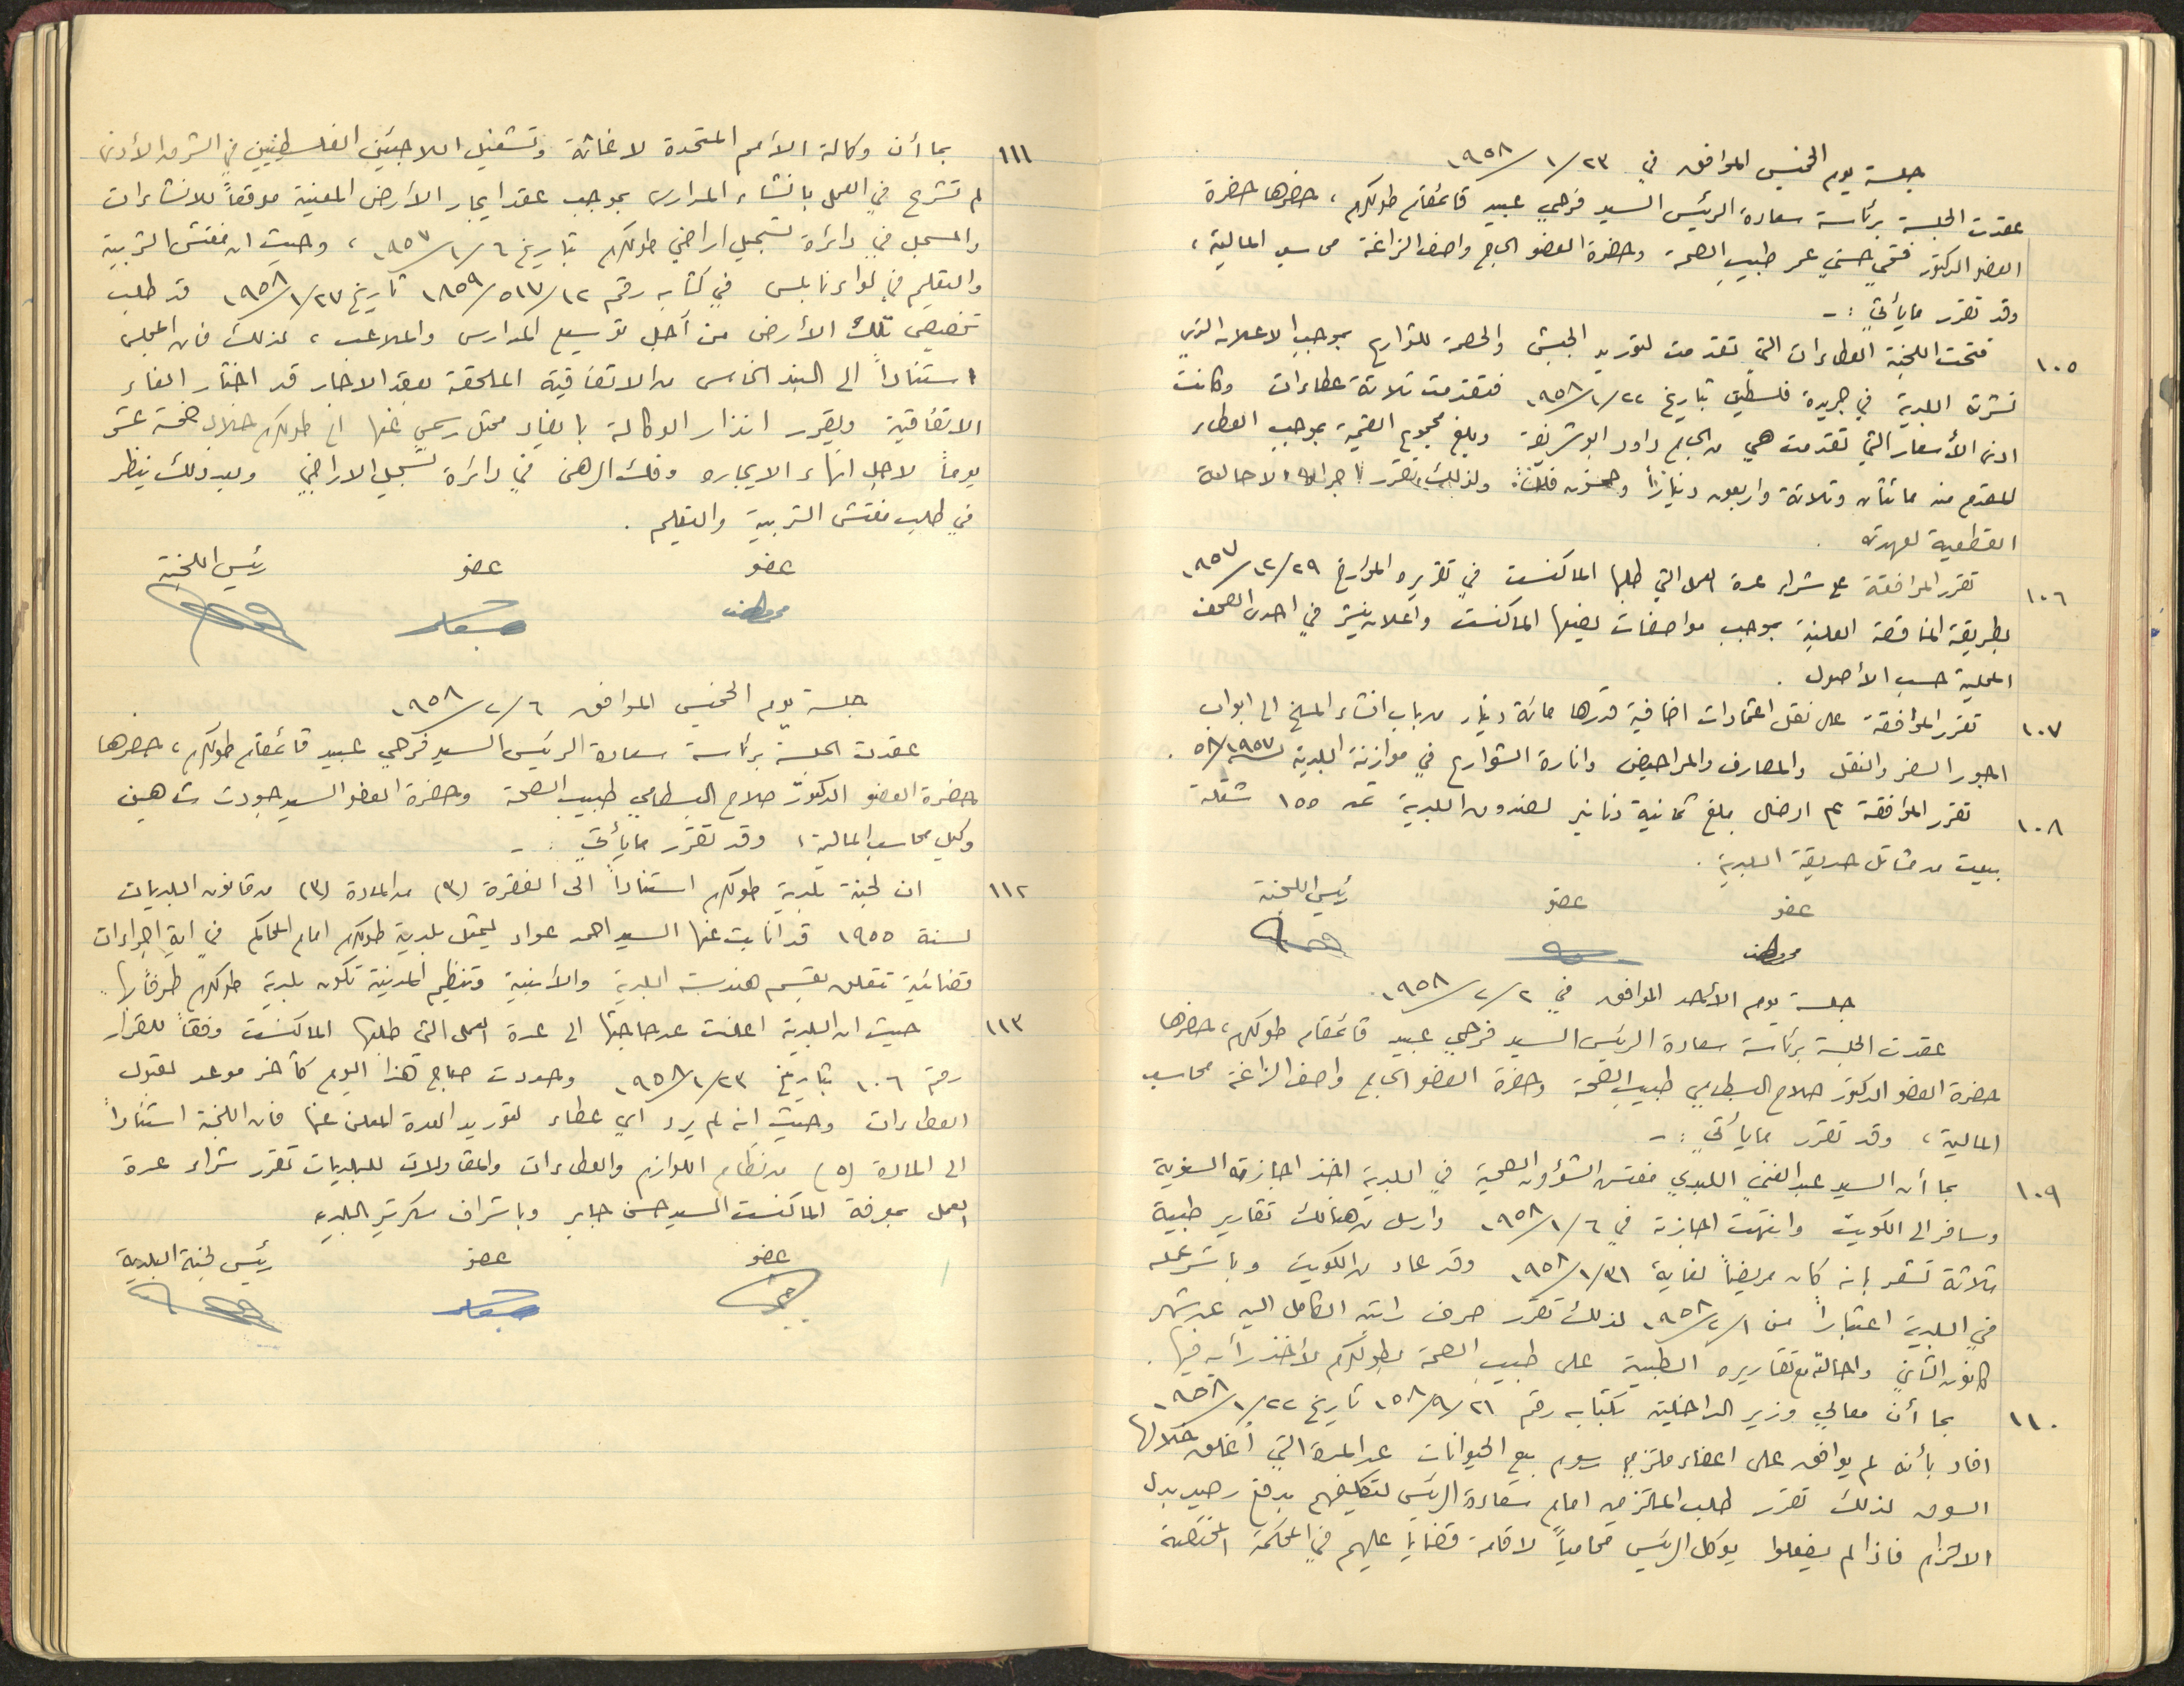 جلسة يوم الخميس الموافق في ٢٣/١/١٩٥٨
عقدت الجلسة برئاسة سعادة الرئيس السيد فرحي عبيد قائمقام طولكرم، حضرها حضرة
العضو الدكتور فتحي حسني عمر طبيب الصحة وحضرة العضو الحاج واصف الزاغة محاسب المالية،
وقد تقرر مايأتي :-
١٠٥ فتحت اللجنة العطاءات التي تقدمت لتوريد الجبش والحصمة للشوارع بموجب الاعلان الذي
نشرته البلدية في جريدة فلسطين بتاريخ ٢٢/١/١٩٥٨ فتقدمت ثلاثة عطاءات وكانت
ادنى الأسعار التي تقدمت هي من الحاج داود ابو شريفة وبلغ مجموع القيمة بموجب العطاء
المقدم منه مائتان وثلاثة واربعون ديناراً وخمسون فلساً ولذلك تقرر اجراء الاحالة
القطعية لعهدته .
١٠٦ تقرر الموافقة على شراء عدة العمل التي طلبها الماكنست في تقريره المؤرخ ٢٩/١٢/١٩٥٧
بطريقة المناقصة العلنية بموجب مواصفات يضعها الماكنست واعلان ينشر في احدى الصحف
المحلية حسب الأصول .
١٠٧ تقرر الموافقة على نقل اعتمادات اضافية قدرها مائة دينار من باب انشاء المسلخ الى ابواب
اجور السفر والنقل والمصارف والمراحيض وانارة الشوارع في موازنة البلدية لسنة ١٩٥٧/٥٨ .
١٠٨ تقرر الموافقة على ادخال مبلغ ثمانية دنانير لصندوق البلدية ثمن ١٥٥ شتلة
بيعت من مشاتل حديقة البلدية .
عضو عضو رئيس اللجنة
جلسة يوم الأحد الموافق في ٢/٢/١٩٥٨
عقدت الجلسة برئاسة سعادة الرئيس السيد فرحي عبيد قائمقام طولكرم، حضرها
حضرة العضو الدكتور صلاح البسطامي طبيب الصحة وحضرة العضو الحاج واصف الزاغة محاسب
المالية، وقد تقرر مايأتي :-
١٠٩ بما أن السيد عبد الغني اللبدي مفتش الشؤون الصحية في البلدية اخذ اجازته السنوية
وسافر الى الكويت وانتهت اجازته في ٦/١/١٩٥٨ وارسل من هنالك تقارير طبية
ثلاثة تشعر بانه كان مريضاً لغاية ٣١/١/١٩٥٨ وقد عاد من الكويت وباشر عمله
في البلدية اعتباراً من ١/٢/١٩٥٨ لذلك تقرر صرف راتبه الكامل اليه عن شهر
كانون الثاني واحالته مع تقاريره الطبية على طبيب الصحة بطولكرم لأخذ رأيه فيها .
١١٠ بما أن معالي وزير الداخلية بكتابه رقم ٢١/٩/١٥٨ تاريخ ٢٢/١/١٩٥٨
افاد بأنه لم يوافق على اعفاء ملتزمي رسوم بيع الحيوانات عن المدة التي أغلق خلالها
السوق لذلك تقرر طلب الملتزمين امام سعادة الرئيس لتكليفهم بدفع رصيد بدل
الالتزام فاذا لم يفعلوا يوكل الرئيس محامياً لاقامة قضايا عليهم في المحكمة المختصة
١١١ بما أن وكالة الأمم المتحدة لاغاثة وتشغيل اللاجئين الفلسطينيين في الشرق الأدنى
لم تشرع في العمل بانشاء المدارس بموجب عقد ايجار الأرض المعنية موقعاً للانشاءات
والمسجل في دائرة تسجيل اراضي طولكرم بتاريخ ٦/١/١٩٥٧، وحيث ان مفتش التربية
والتعليم في لواء نابلس في كتابه رقم ١٢/٥١٧/١٨٥٩ تاريخ ٢٧/١/١٩٥٨ قد طلب
تخصيص تلك الأرض من أجل توسيع المدارس والملاعب، لذلك فان المجلس
استناداً الى البند الخامس من الاتفاقية الملحقة بعقد الايجار قد اختار الغاء
الاتفاقية ويقرر انذار الوكالة بايفاد ممثل رسمي عنها الى طولكرم خلال خمسة عشر
يوماً لاجل انهاء الايجاره وفك الرهن في دائرة تسجيل الاراضي وبعد ذلك ينظر
في طلب مفتش التربية والتعليم .
عضو عضو رئيس اللجنة
جلسة يوم الخميس الموافق ٦/٢/١٩٥٨
عقدت الجلسة برئاسة سعادة الرئيس السيد فرحي عبيد قائمقام طولكرم، حضرها
حضرة العضو الدكتور صلاح البسطامي طبيب الصحة وحضرة العضو السيد جودت شاهين
وكيل محاسب المالية، وقد تقرر مايأتي :-
١١٢ ان لجنة بلدية طولكرم استناداً الى الفقرة (٣) من المادة (٣) من قانون البلديات
لسنة ١٩٥٥ قد أنابت عنها السيد احمد عواد ليمثل بلدية طولكرم امام المحاكم في اية اجراءات
قضائية تتعلق بقسم هندسة البلدية والأبنية وتنظيم المدينة تكون بلدية طولكرم طرفاً بها .
١١٣ حيث ان البلدية اعلنت عن حاجتها الى عدة العمل التي طلبها الماكنست وفقاً للقرار
رقم ١٠٦ بتاريخ ٢٣/١/١٩٥٨ وحددت صباح هذا اليوم كآخر موعد لقبول
العطاءات وحيث انه لم يرد اي عطاء لتوريد العدة المعلن عنها فان اللجنة استناداً
الى المادة (٥) من نظام اللوازم والعطاءات والمقاولات للبلديات تقرر شراء عدة
العمل بمعرفة الماكنست السيد حسن جابر وباشراف سكرتير البلدية
عضو عضو رئيس لجنة البلدية